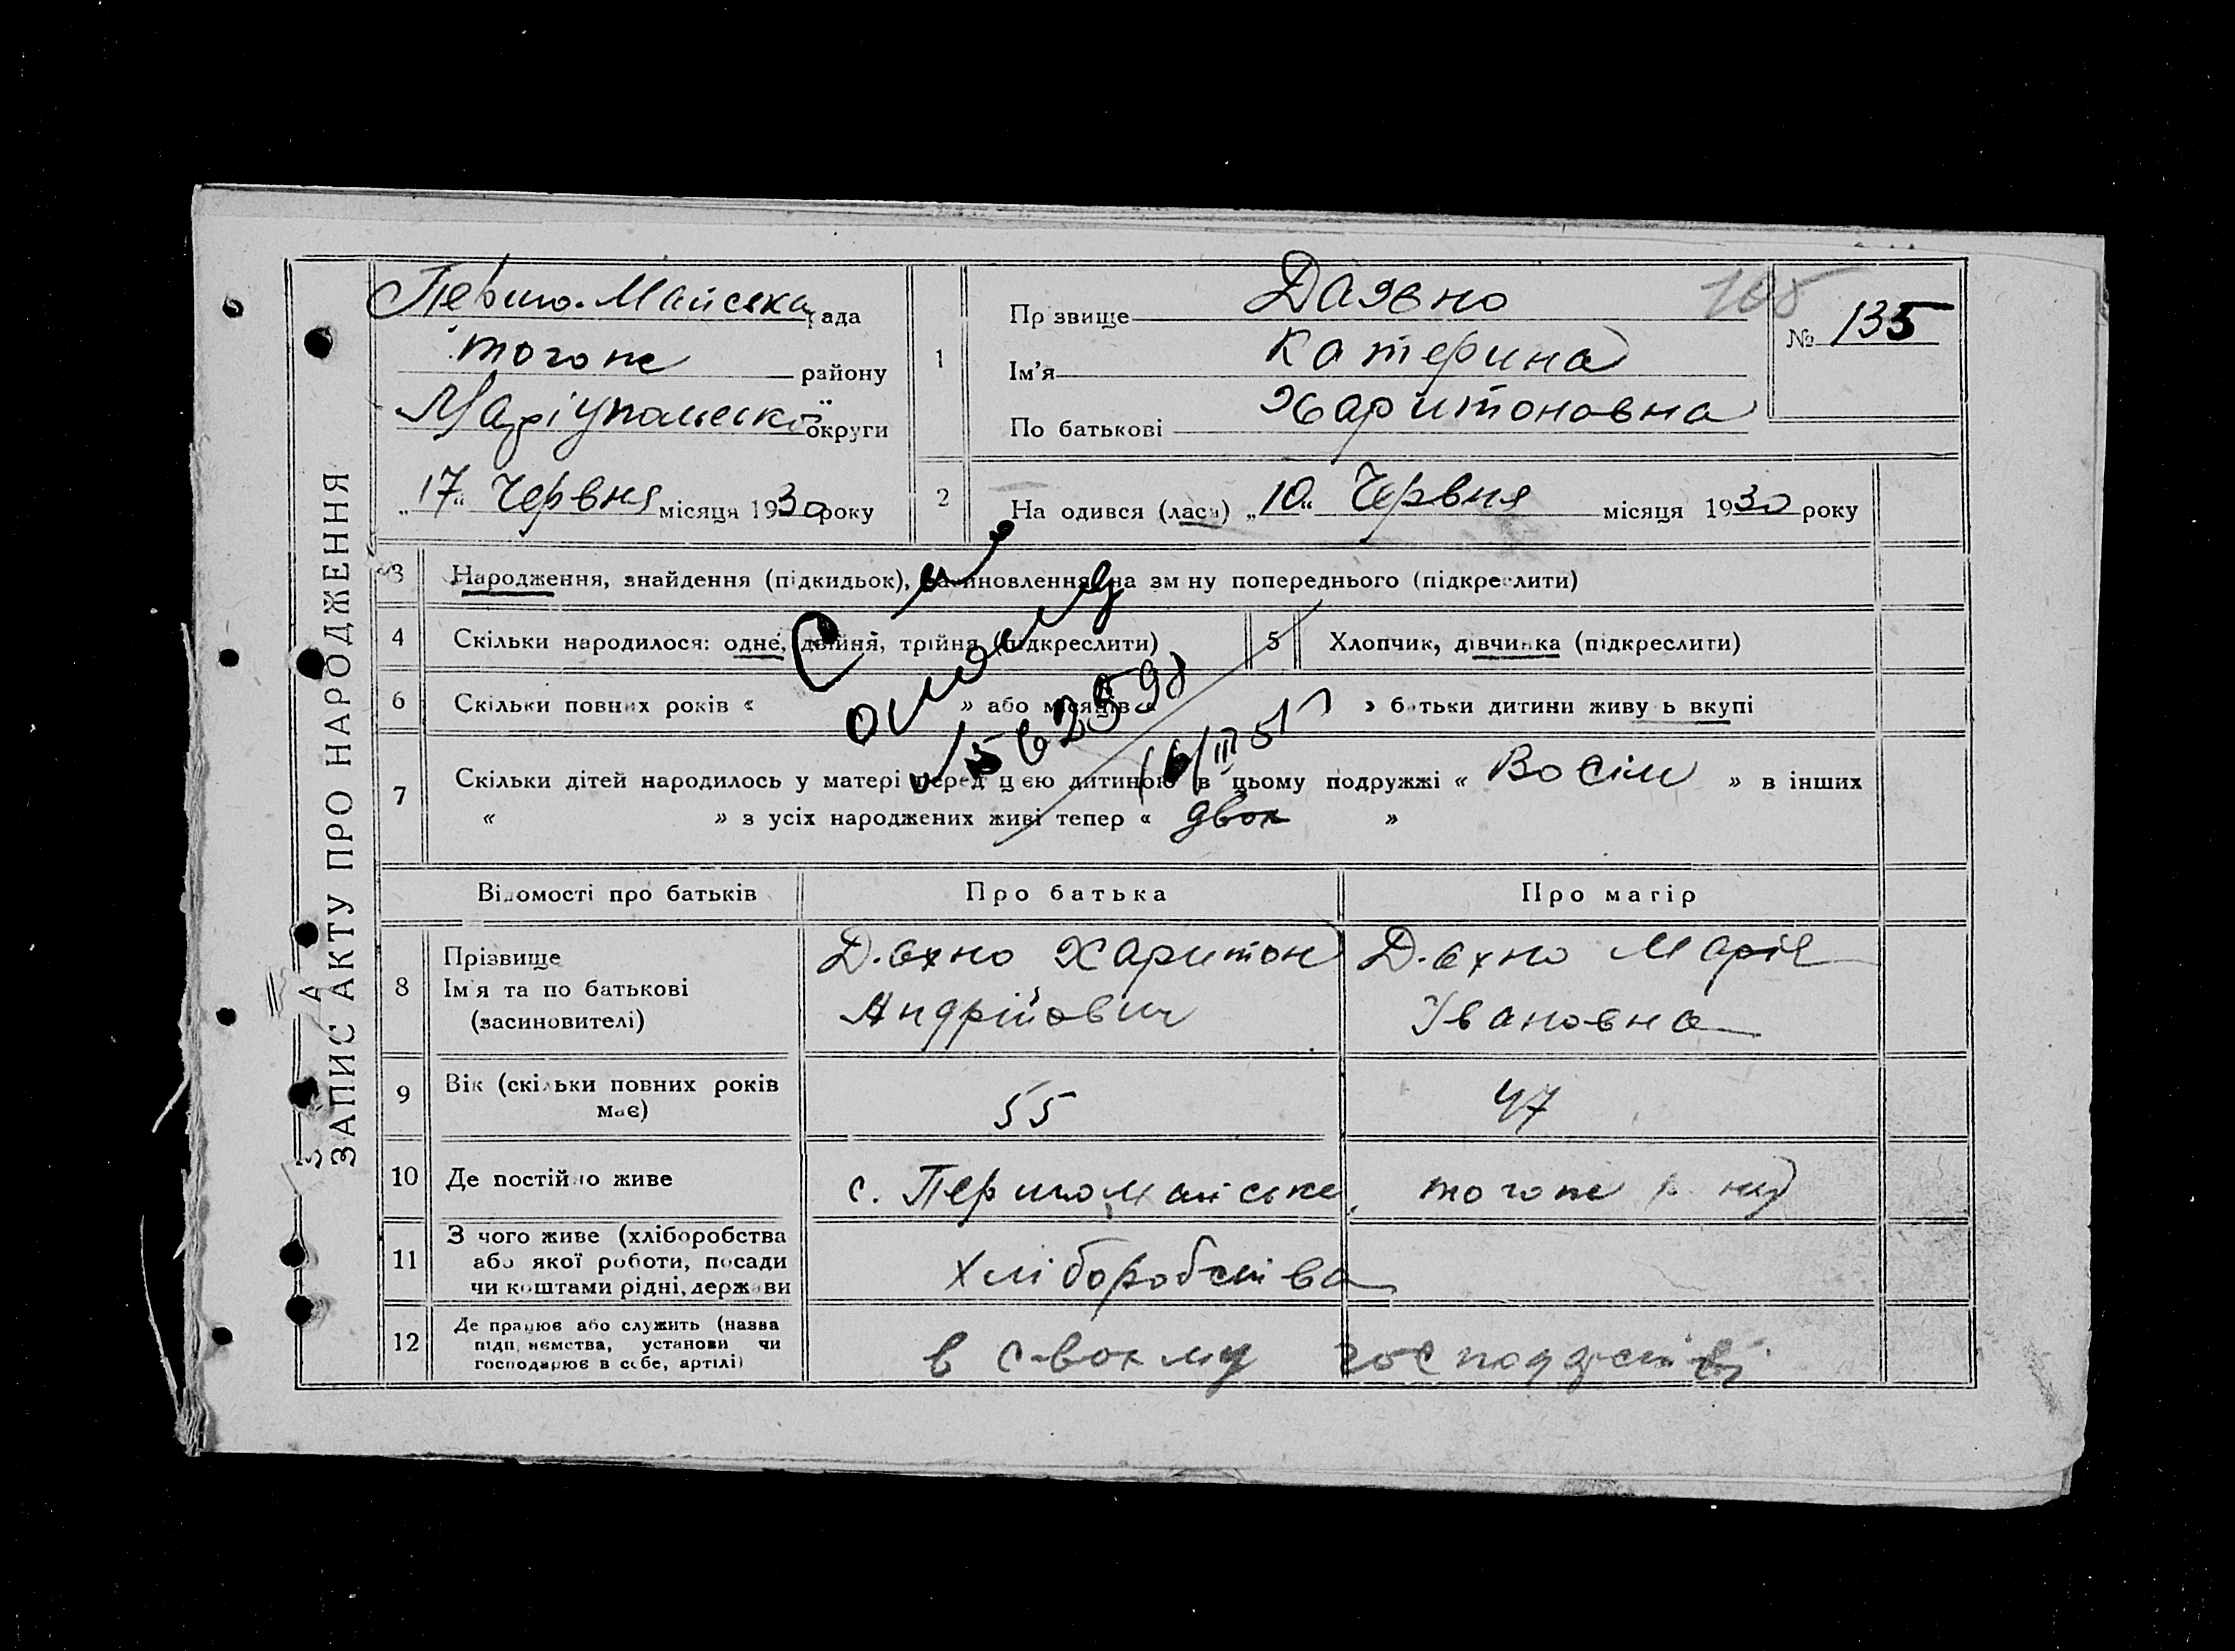 ЗАПИС АКТУ ПРО НАРОДЖЕННЯ
Першо-Майська рада
тогож району
Маріупольської округи
„17“ Червня місяця 1930 року
1
Прізвище Даяхно
Ім'я Катерина
По батькові Харитоновна
105
№ 135
2
На одився (лася) „10“ Червня місяця 1930 року
3 Народження, знайдення (підкидьок), засиновлення на зм ну попереднього (підкреслити)
4 Скільки народилося: одне, двійня, трійня (підкреслити) 5 Хлопчик, дівчинка (підкреслити)
6 Скільки повних років « » або місяців « » батьки дитини живуть вкупі
7 Скільки дітей народилось у матері перед цією дитиною в цьому подружжі « Восім » в інших
« » з усіх народжених живі тепер « двоє »
16/III 51
Відомості про батьків Про батька Про матір
8 Прізвище
Ім'я та по батькові
(засиновителі)
Харитон
Андрійович
Марія
Івановна
9 Вік (скільки повних років
має)
55 47
10 Де постійно живе с. Першомайське тогож
11 З чого живе (хліборобства
або якої роботи, посади
чи коштами рідні, держави
Хліборобства
12 Де працює або служить (назва
підп иємства, установи чи
господарює в себе, артілі)
в своєму господарстві